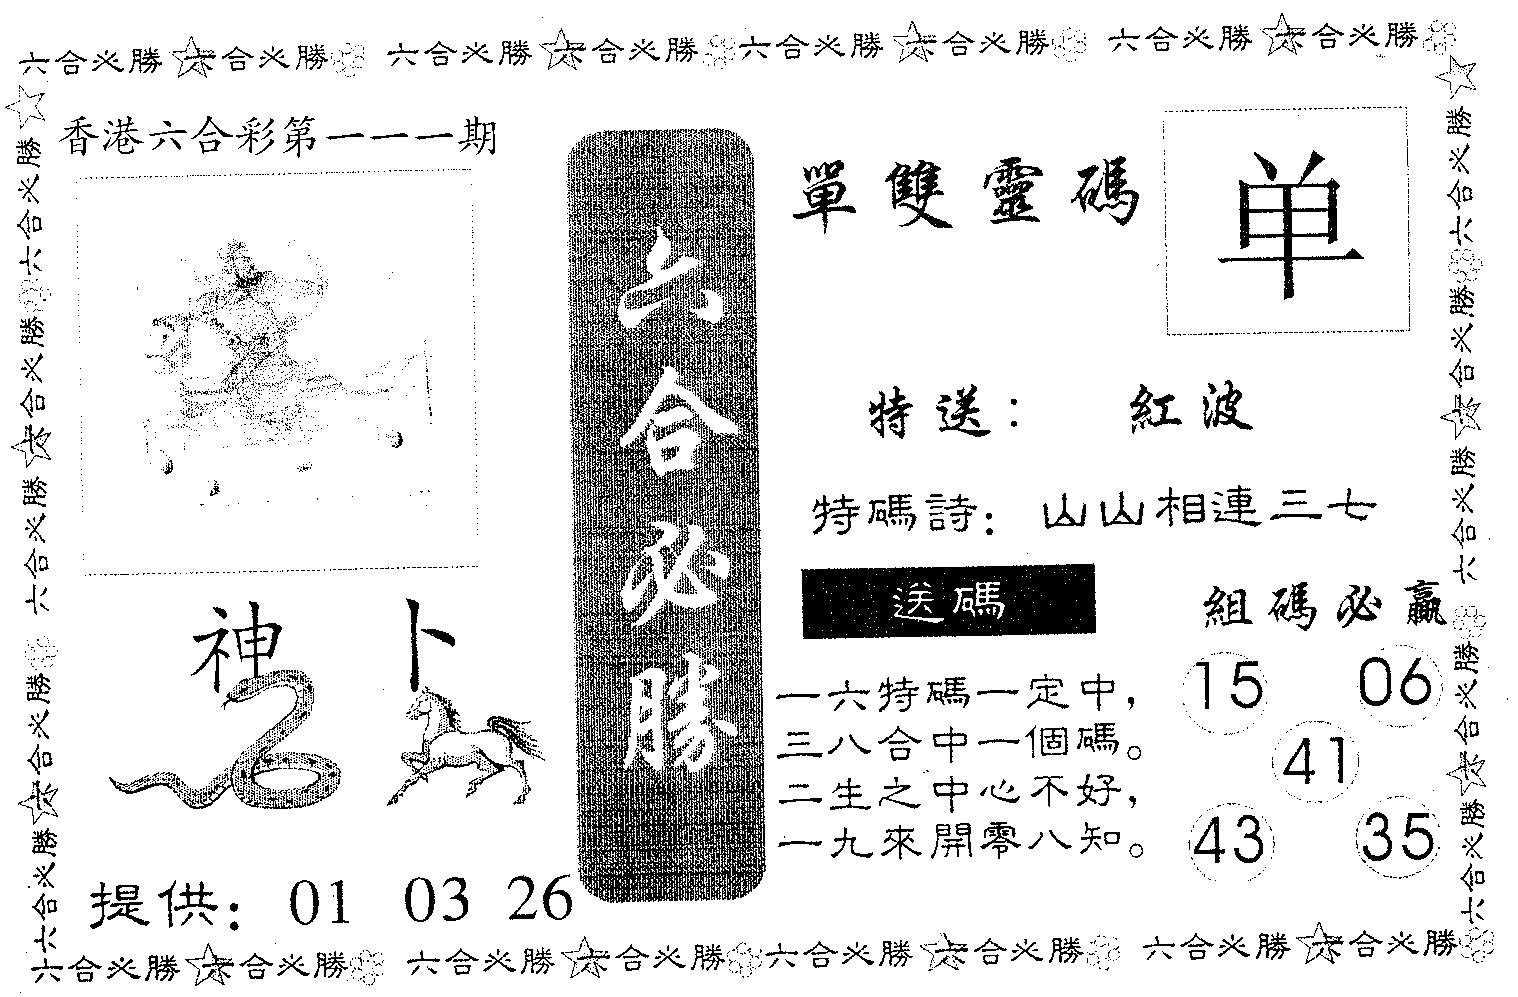 六合必勝 六合必勝 六合必勝 六合必勝 六合必勝 六合必勝 六合必勝 六合必勝
六合必勝 六合必勝 六合必勝 六合必勝 六合必勝
香港六合彩第一一一期
神 卜
提供： 01 03 26
六合必勝
單雙靈碼 单
特送： 紅波
特碼詩： 山山相連三七
送碼
一六特碼一定中，
三八合中一個碼。
二生之中心不好，
一九來開零八知。
組碼必贏
15 06
41
43 35
六合必勝 六合必勝 六合必勝 六合必勝 六合必勝
六合必勝 六合必勝 六合必勝 六合必勝 六合必勝 六合必勝 六合必勝 六合必勝